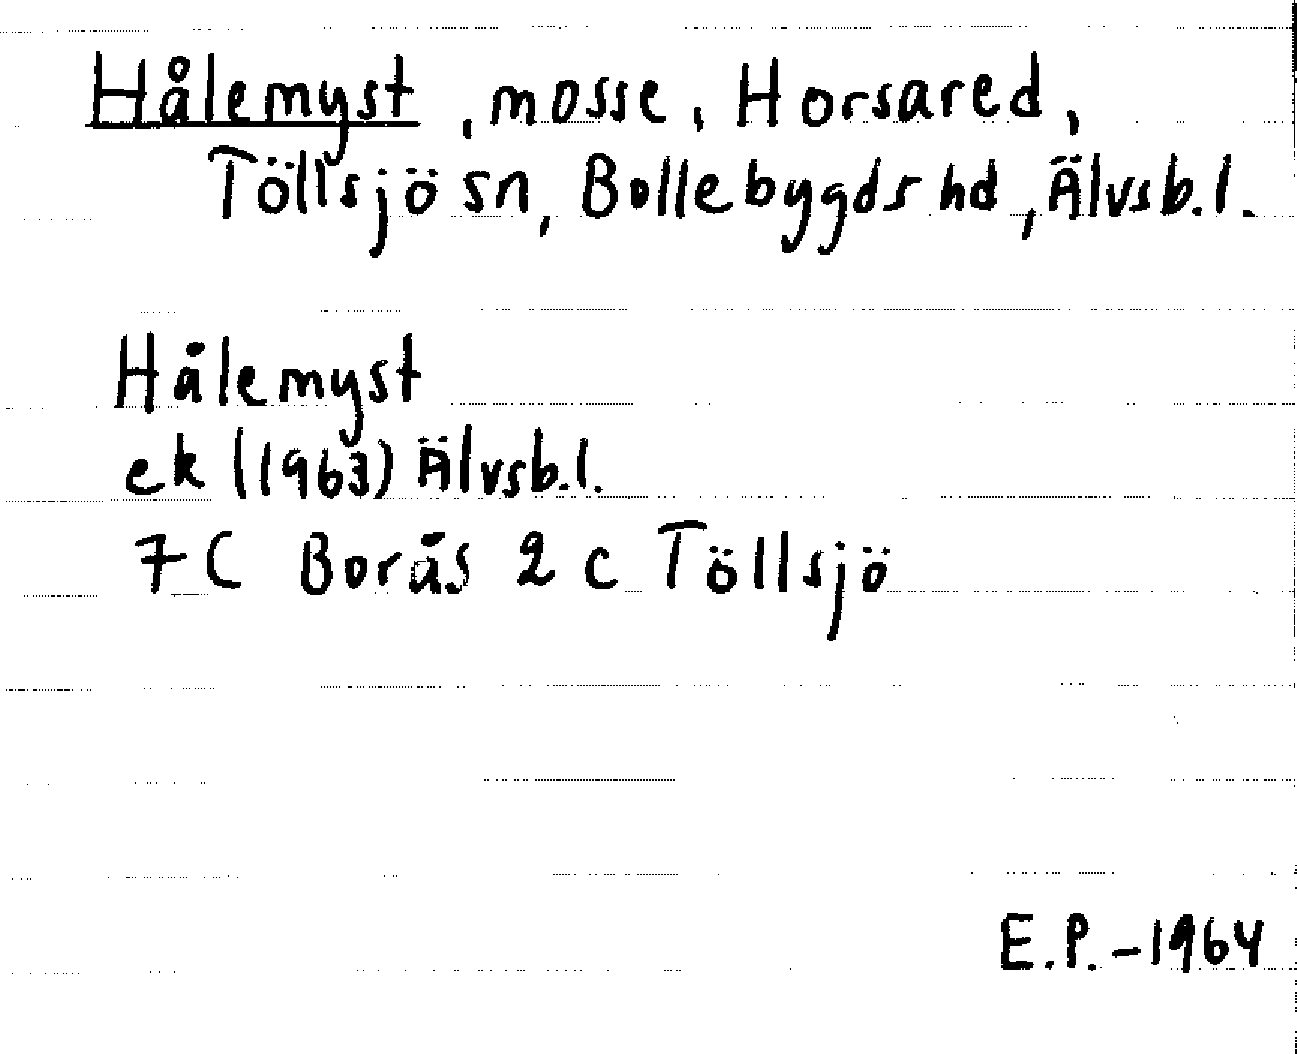 Hålemyst, mosse, Horsared,
Töllsjö sn, Bollebygds hd, Älvsb.l.
Hålemyst
ek (1963) Älvsb.l.
7C Borås 2 c Töllsjö
E.P.-1964